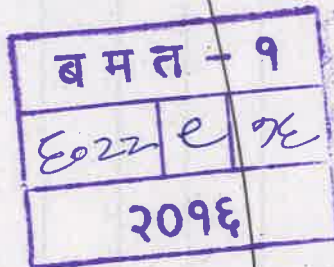 ब म त - १
६०२२ ९
२०१६